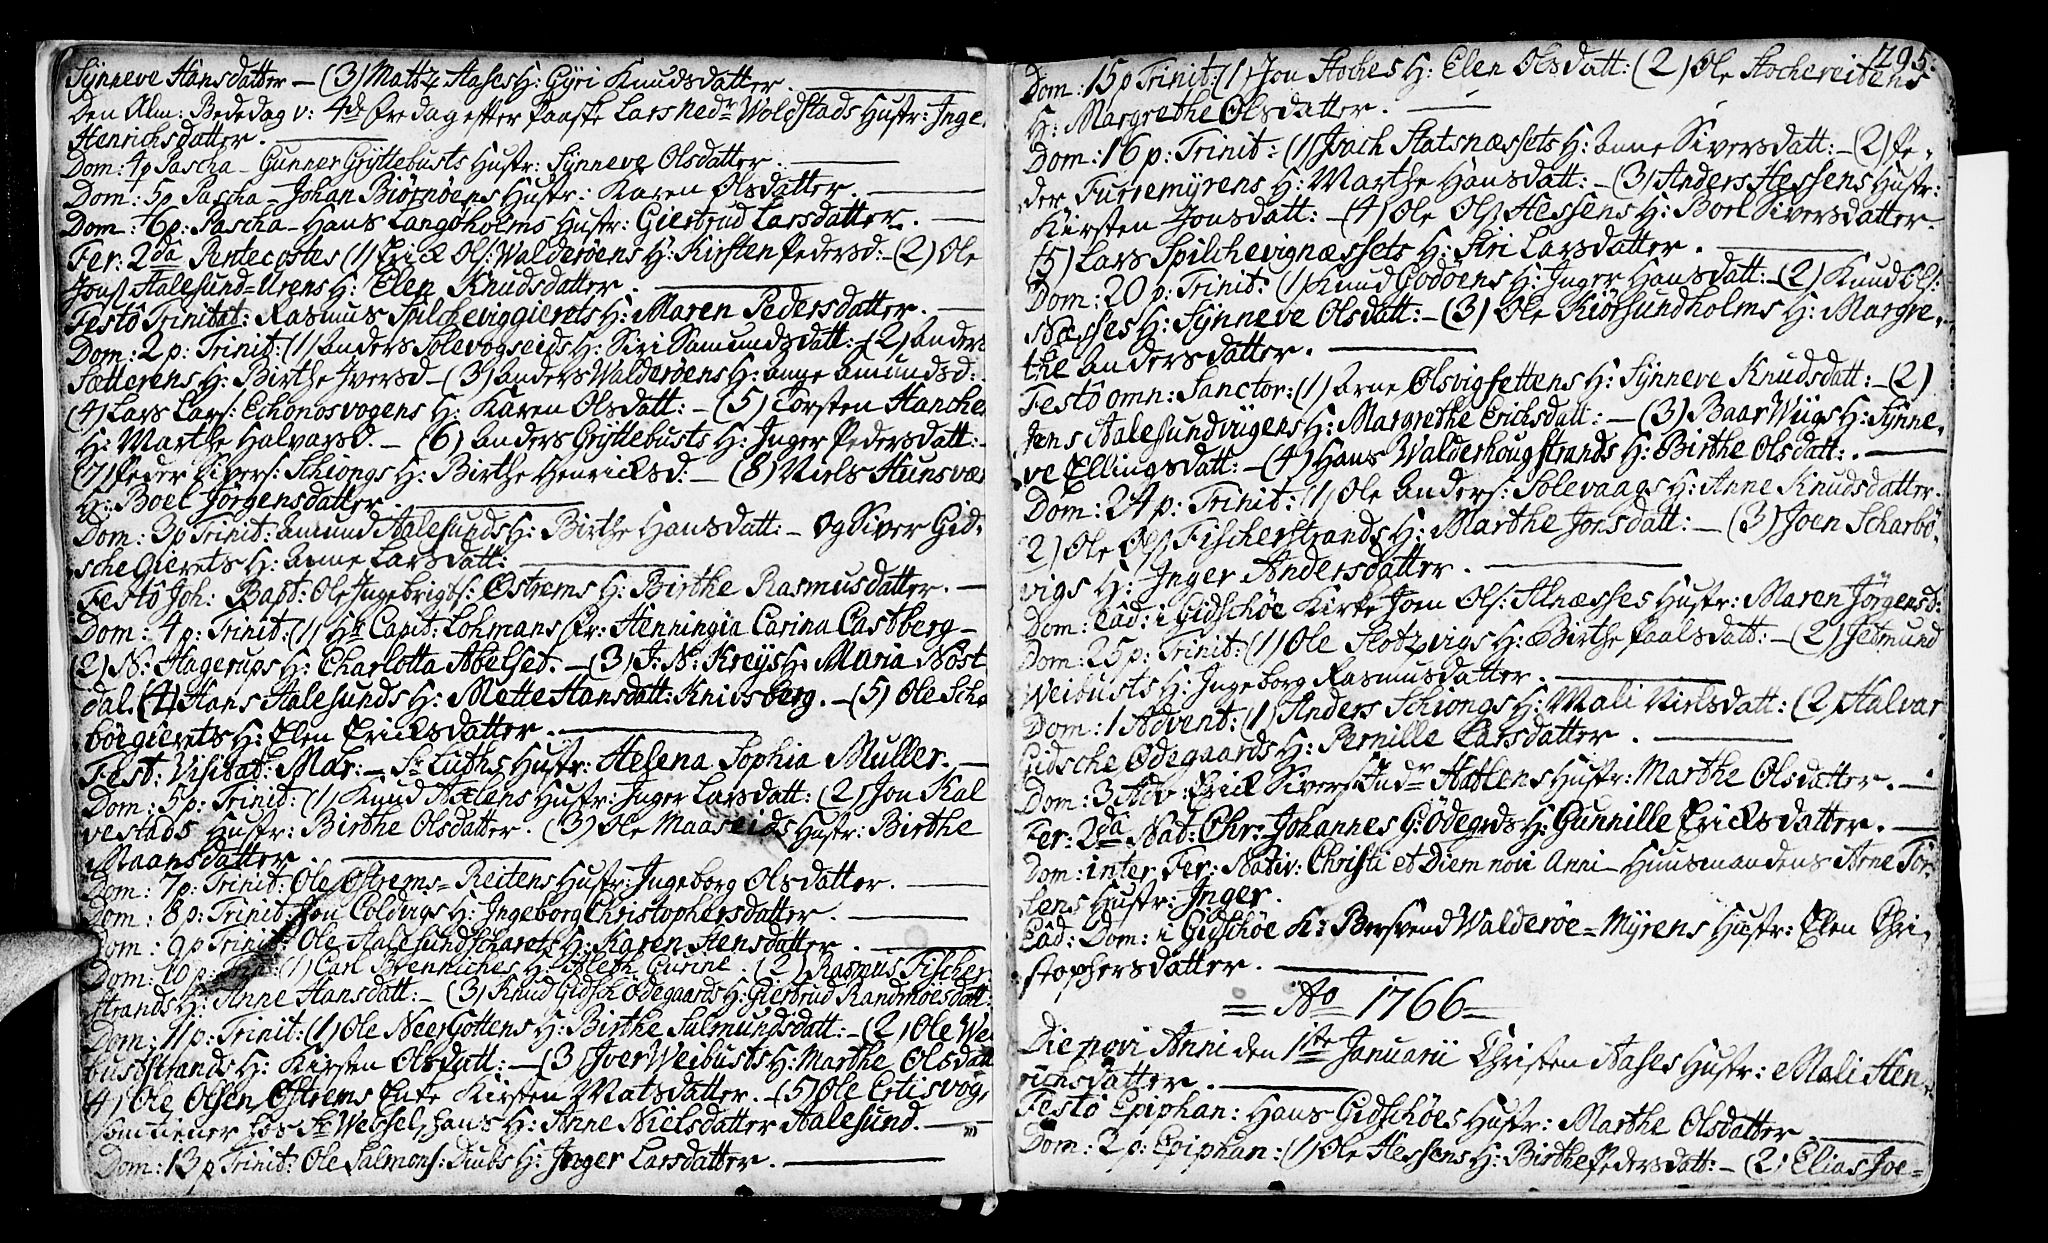 Synneve Hansdatter – (3) Matz Aases H: Gyri Knudsdatter.
Den Alm: Bededag v: 4de Fredag efter Paaske Lars Nedr Woldstads Hustr: Inge
Henrichsdatter.
Dom: 4 p Pascha – Gunner Gryttebusts Hustr: Synneve Olsdatter.
Dom: 5 p Pascha – Johan Biørnøens Hustr: Karen Olsdatter.
Dom: 6 p: Pascha – Hans Langøholms Hustr: Giertrud Larsdatter.
Fer: 2da Pentecostes (1) Erick Ols: Walderøens H: Kirsten Pedersd: – (2) Ole
Jons: Aalesund=Urens H: Elen Knudsdatter.
Festô Trinitat: Rasmus Spilcheviggierets H: Maren Pedersdatter.
Dom: 2 p: Trinit: (1) Anders Solevogseids H: Siri Samundsdatt: – (2) Anders
Sætterens H: Birthe Iversd – (3) Anders Walderøens H: Anne Amundsd:
(4) Lars Lars: Echonosvogens H: Karen Olsdatt: – (5) Torsten Hanche
H: Marthe Halvarsd. – (6) Anders Gryttebusts H: Inger Pedersdatt: –
(7) Peder Sivers: Schiongs H: Birthe Henricksd: – (8) Niels Hunsvæ
H: Boel Jørgensdatter.
Dom: 3 p Trinit: Amund Aalesunds H: Birthe Hansdatt: – Og Siver Gid-
sche Gierets H: Anne Larsdatt:
Festô Joh: Bapt: Ole Ingebrigts: Østrems H: Birthe Rasmusdatter.
Dom: 4 p: Trinit: (1) Hr Capit: Lohmans Fr: Henningia Carina Castberg –
(2) N: Hagerups H: Charlotta Abelset. – (3) J: N: Kreys H: Maria Nøst
dal. (4) Hans Aalesunds H: Mette Hansdatt: Knivsberg. – (5) Ole Scha
bøegierets H: Elen Ericksdatter.
Fest: Visitat: Mar: – Sr Luths Hustr: Helena Sophia Muller.
Dom: 5 p: Trinit: (1) Knud Axlens Hustr: Inger Larsdatt: (2) Jon Kal
vestads Hustr: Birthe Olsdatter. (3) Ole Maaseids Hustr: Birthe
Maansdatter.
Dom: 7 p: Trinit: Ole Østrems=Reitens Hustr: Ingeborg Olsdatter.
Dom: 8 p: Trinit: Jon Coldvigs H: Ingeborg Christophersdatter.
Dom: 9 p Trinit: Ole Aalesundscharets H: Karen Jensdatter.
Dom: 10 p: Trin: (1) Carl Brenniches H: Aleth Gurine. (2) Rasmus Fischer
strands H: Anne Hansdatt: – (3) Knud Gidsch Ødegaards H: Giertrud Randmøesdatt
Dom: 11 p: Trinit: (1) Ole Neergottens H: Birthe Salmundsdatt: – (2) Ole We
buststrands H: Kirsten Olsdatt: – (3) Iver Weibusts H: Marthe Olsdatt
4) Ole Olsen Østrems Enke Kirsten Matsdatter. – (5) Ole Ertisvog,
som tiener hos Hr Websel, hans H: Anne Nielsdatter Aalesund.
Dom: 13 p Trinit: Ole Salmons: Diubs H: Inger Larsdatter.
295.
Dom: 15 p Trinit: (1) Jon Stoches H: Elen Olsdatt: (2) Ole Stochereitens
H: Margrethe Olsdatter.
Dom: 16 p: Trinit: (1) Isach Slatsnæssets H: Anne Siversdatt: – (2) Pe-
der Furremyrens H: Marthe Hansdatt: – (3) Anders Hessens Hustr:
Kirsten Jonsdatt: – (4) Ole Ols: Hessens H: Boel Siversdatter.
(5) Lars Spilchevignæssets H: Siri Larsdatter.
Dom: 20 p: Trinit: (1) Knud Godøens H: Inger Hansdatt: – (2) Knud Ols:
Næsses H: Synneve Olsdatt: – (3) Ole Kiørsundholms H: Margre-
the Andersdatter.
Festô omn: Sanctor: (1) Arne Olsvigsettens H: Synneve Knudsdatt: – (2)
Jens Aalesundvigens H: Margrethe Erichsdatt: – (3) Baar Wiigs H: Synne-
ve Ellingsdatt: – (4) Hans Walderhougstrands H: Birthe Olsdatt:
Dom: 24 p: Trinit: (1) Ole Anders: Solevaags H: Anne Knudsdatter.
2) Ole Ols: Fischerstrands H: Marthe Jonsdatt: – (3) Joen Scharbø-
vigs H: Inger Andersdatter.
Dom: eâd: i Gidschøe Kirke Joen Ols: Alnæsses Hustr: Maren Jørgensd:
Dom: 25 p: Trinit: (1) Ole Slotzvigs H: Birthe Paalsdatt: – (2) Jetmund
Weibusts H: Ingeborg Rasmusdatter.
Dom: 1 Advent: (1) Anders Schiongs H: Mali Nielsdatt: (2) Halvar
Gidsche Ødegaards H: Pernille Larsdatter.
Dom: 3 Adv: Erick Sivers: Indr Hatlens Hustr: Marthe Olsdatter.
Fer: 2da Nat: Chr: Johannes G: Ødegrds H: Gunnille Ericksdatter.
Dom: inter Fer: Nativ: Christi et Diem novi Anni – Huusmandens Arne Tør-
lens Hustr: Inger.
Eâd: Dom: i Gidschøe K: Bersvend Walderøe=Myrens Hustr: Elen Chri-
stophersdatter.
= Ao 1766 =
Die novi Anni den 1ste Januarii Christen Aases Hustr: Mali Hen-
richsdatter.
Festô Epiphan: Hans Gidschøes Hustr: Marthe Olsdatter.
Dom: 2 p: Epiphan: (1) Ole Hessens H: Birthe Pedersdatt: – (2) Elias Joe=